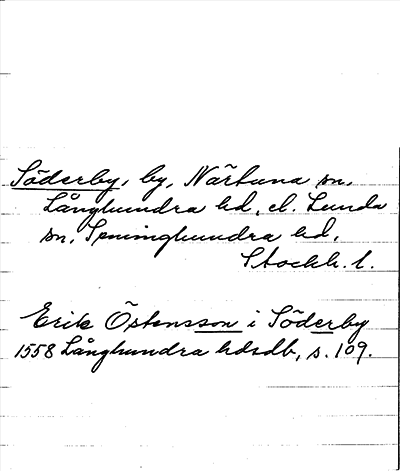 Söderby, by, Närtuna sn,
Långhundra hd, el. Lunda
sn, Seminghundra hd,
Stockh. l.
Erik Östensson i Söderby
1558 Långhundra hdsdb, s. 109.